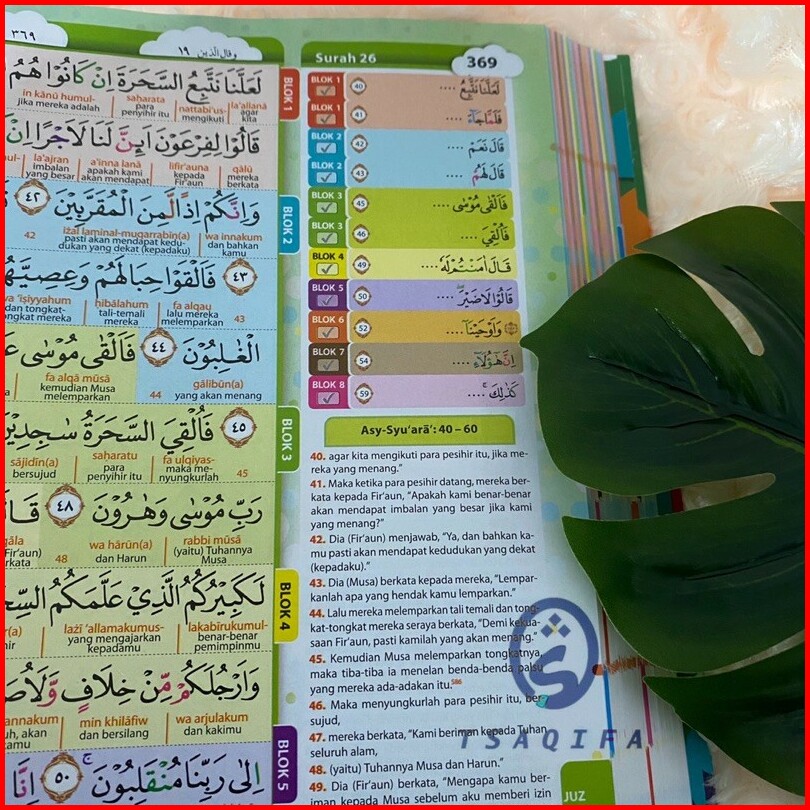 ٣٦٩
وقال الذين ١٩
لَعَلَّنَا نَتَّبِعُ السَّحَرَةَ اِنْ كَانُوْا هُمُ
la'allanā
nattabi'us-
saḥarata
in kānū humul-
agar
kita
mengikuti
para
penyihir itu
jika mereka adalah
قَالُوْا لِفِرْعَوْنَ اَىِٕنَّ لَنَا لَاَجْرًا اِنْ
qālū
lifir'auna
a'inna lanā
la'ajran
mereka
berkata
kepada
Fir'aun
apakah kami
akan mendapat
imbalan
yang besar
وَاِنَّكُمْ اِذًا لَّمِنَ الْمُقَرَّبِيْنَ ٤٢
wa innakum
iżal laminal-muqarrabīn(a)
42
dan bahkan
kamu
pasti akan mendapat kedu-
dukan yang dekat (kepadaku)
٤٣ فَاَلْقَوْا حِبَالَهُمْ وَعِصِيَّهُمْ
43
fa alqau
ḥibālahum
wa 'iṣiyyahum
lalu mereka
melemparkan
tali-temali
mereka
dan tongkat-
tongkat mereka
الْغٰلِبُوْنَ ٤٤ فَاَلْقٰى مُوْسٰى
gālibūn(a)
44
fa alqā mūsā
yang akan menang
kemudian Musa
melemparkan
٤٥ فَاُلْقِيَ السَّحَرَةُ سٰجِدِيْنَ
45
fa ulqiyas-
saḥaratu
sājidīn(a)
maka me-
nyungkurlah
para
penyihir itu
bersujud
رَبِّ مُوْسٰى وَهٰرُوْنَ ٤٨ قَالَ
rabbi mūsā
wa hārūn(a)
48
(yaitu) Tuhannya
Musa
dan Harun
لَكَبِيْرُكُمُ الَّذِيْ عَلَّمَكُمُ
lakabīrukumul-
lażī 'allamakumus-
benar-benar
pemimpinmu
yang mengajarkan
kepadamu
وَاَرْجُلَكُمْ مِّنْ خِلَافٍ
wa arjulakum
min khilāfiw
dan kakimu
dan bersilang
اِلٰى رَبِّنَا مُنْقَلِبُوْنَ ٥٠ اِنَّا
BLOK 1
BLOK 2
BLOK 3
BLOK 4
BLOK 5
Surah 26
369
BLOK 1 40 لَعَلَّنَا نَتَّبِعُ ....
BLOK 1 41 فَلَمَّا جَاۤءَ ....
BLOK 2 42 قَالَ نَعَمْ ....
BLOK 2 43 قَالَ لَهُمْ ....
BLOK 3 45 فَاَلْقٰى مُوْسٰى ....
BLOK 3 46 فَاُلْقِيَ ....
BLOK 4 49 قَالَ اٰمَنْتُمْ لَهٗ ....
BLOK 5 50 قَالُوْا لَا ضَيْرَ ....
BLOK 6 52 وَاَوْحَيْنَآ ....
BLOK 7 54 اِنَّ هٰٓؤُلَاۤءِ ....
BLOK 8 59 كَذٰلِكَ ....
Asy-Syu'arā': 40 – 60
40. agar kita mengikuti para pesihir itu, jika me-
reka yang menang."
41. Maka ketika para pesihir datang, mereka ber-
kata kepada Fir'aun, "Apakah kami benar-benar
akan mendapat imbalan yang besar jika kami
yang menang?"
42. Dia (Fir'aun) menjawab, "Ya, dan bahkan ka-
mu pasti akan mendapat kedudukan yang dekat
(kepadaku)."
43. Dia (Musa) berkata kepada mereka, "Lempar-
kanlah apa yang hendak kamu lemparkan."
44. Lalu mereka melemparkan tali temali dan tong-
kat-tongkat mereka seraya berkata, "Demi kekua-
saan Fir'aun, pasti kamilah yang akan menang."
45. Kemudian Musa melemparkan tongkatnya,
maka tiba-tiba ia menelan benda-benda palsu
yang mereka ada-adakan itu.⁵⁸⁶
46. Maka menyungkurlah para pesihir itu, ber-
sujud,
47. mereka berkata, "Kami beriman kepada Tuhan
seluruh alam,
48. (yaitu) Tuhannya Musa dan Harun."
49. Dia (Fir'aun) berkata, "Mengapa kamu ber-
iman kepada Musa sebelum aku memberi izin
JUZ
TSAQIFA